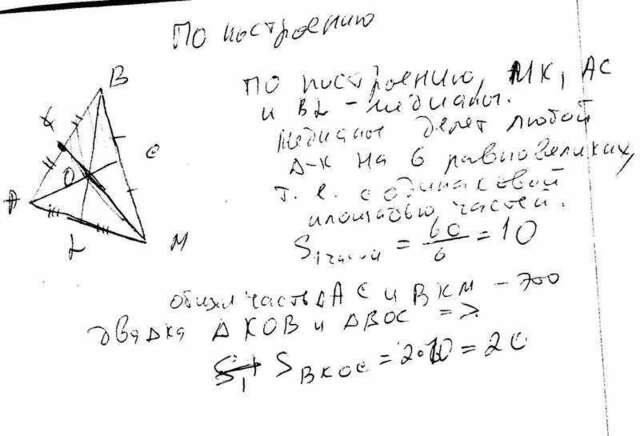 По построению
По построению, MK, AC
и BL - медианы.
Медианы делят любой
Δ-к на 6 равновеликих,
т. е. с одинаковой
площадью частей.
S1 части = 60/6 = 10
общая часть Δ AC и BKM - это
два Δка ΔKOB и ΔBOC =>
S1+ SBKOC = 2·10 = 20
B
K
C
O
A
L
M